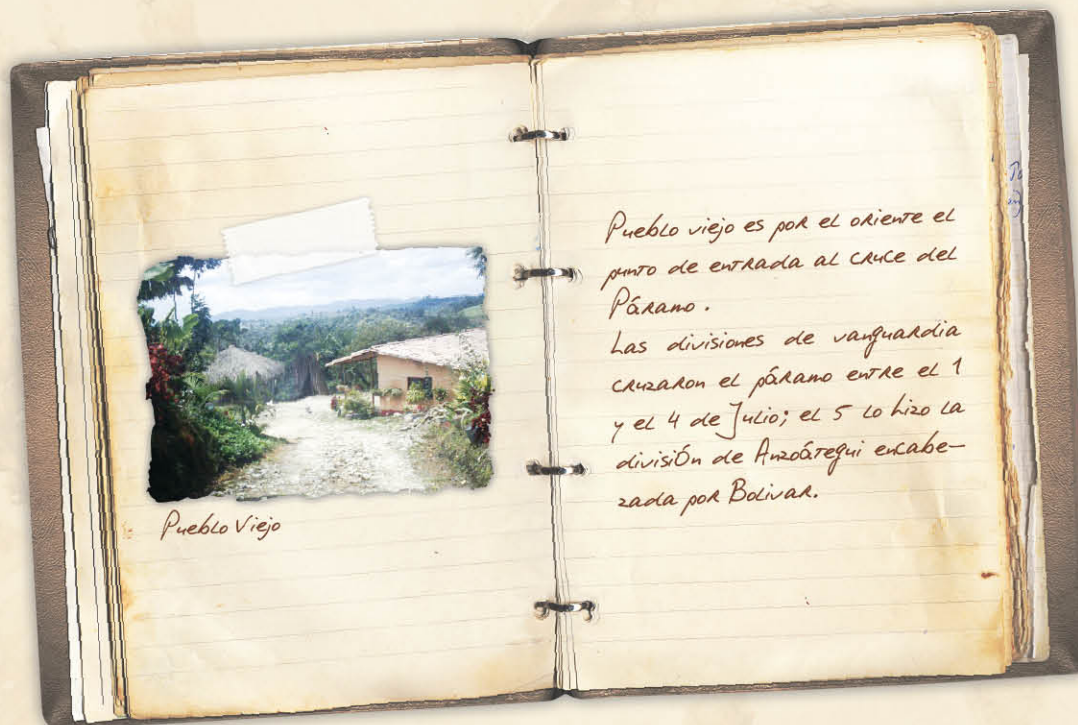 Pueblo Viejo
Pueblo viejo es por el oriente el
punto de entrada al cruce del
Páramo.
Las divisiones de vanguardia
cruzaron el páramo entre el 1
y el 4 de Julio; el 5 lo hizo la
división de Anzoátegui encabe-
zada por Bolivar.